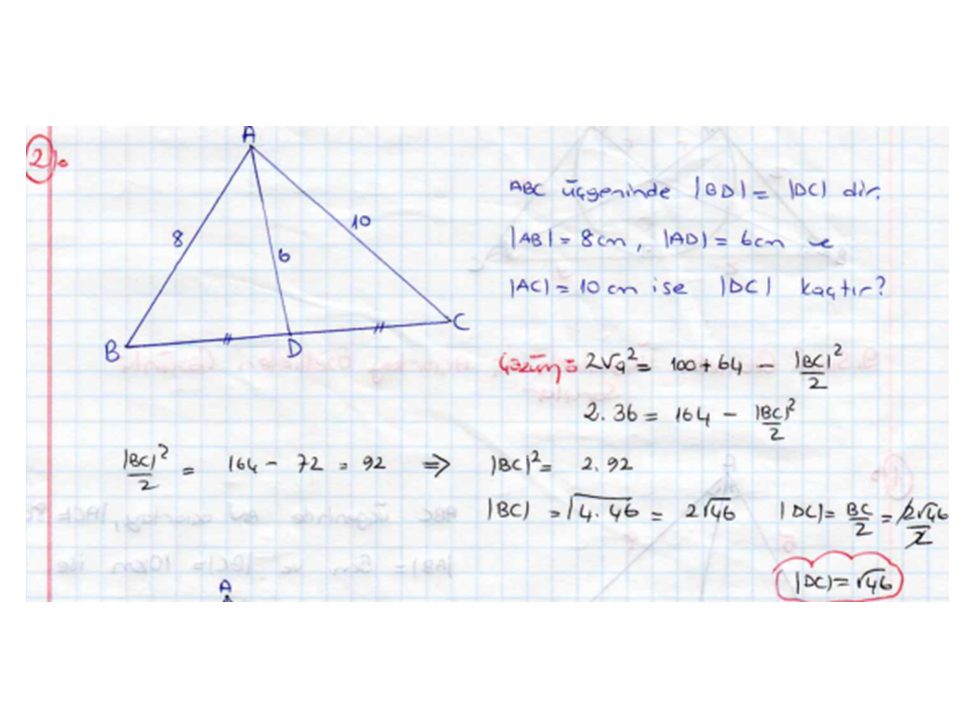 2).
A
8
10
6
B
D
C
ABC üçgeninde |BD| = |DC| dir.
|AB| = 8cm, |AD| = 6cm ve
|AC| = 10 cm ise |DC| kaçtır?
Çözüm = 2Va² = 100 + 64 - |BC|²/2
2.36 = 164 - |BC|²/2
|BC|²/2 = 164 - 72 = 92 ⇒ |BC|² = 2.92
|BC| = √4.46 = 2√46 |DC| = BC/2 = 2√46/2
|DC| = √46
A